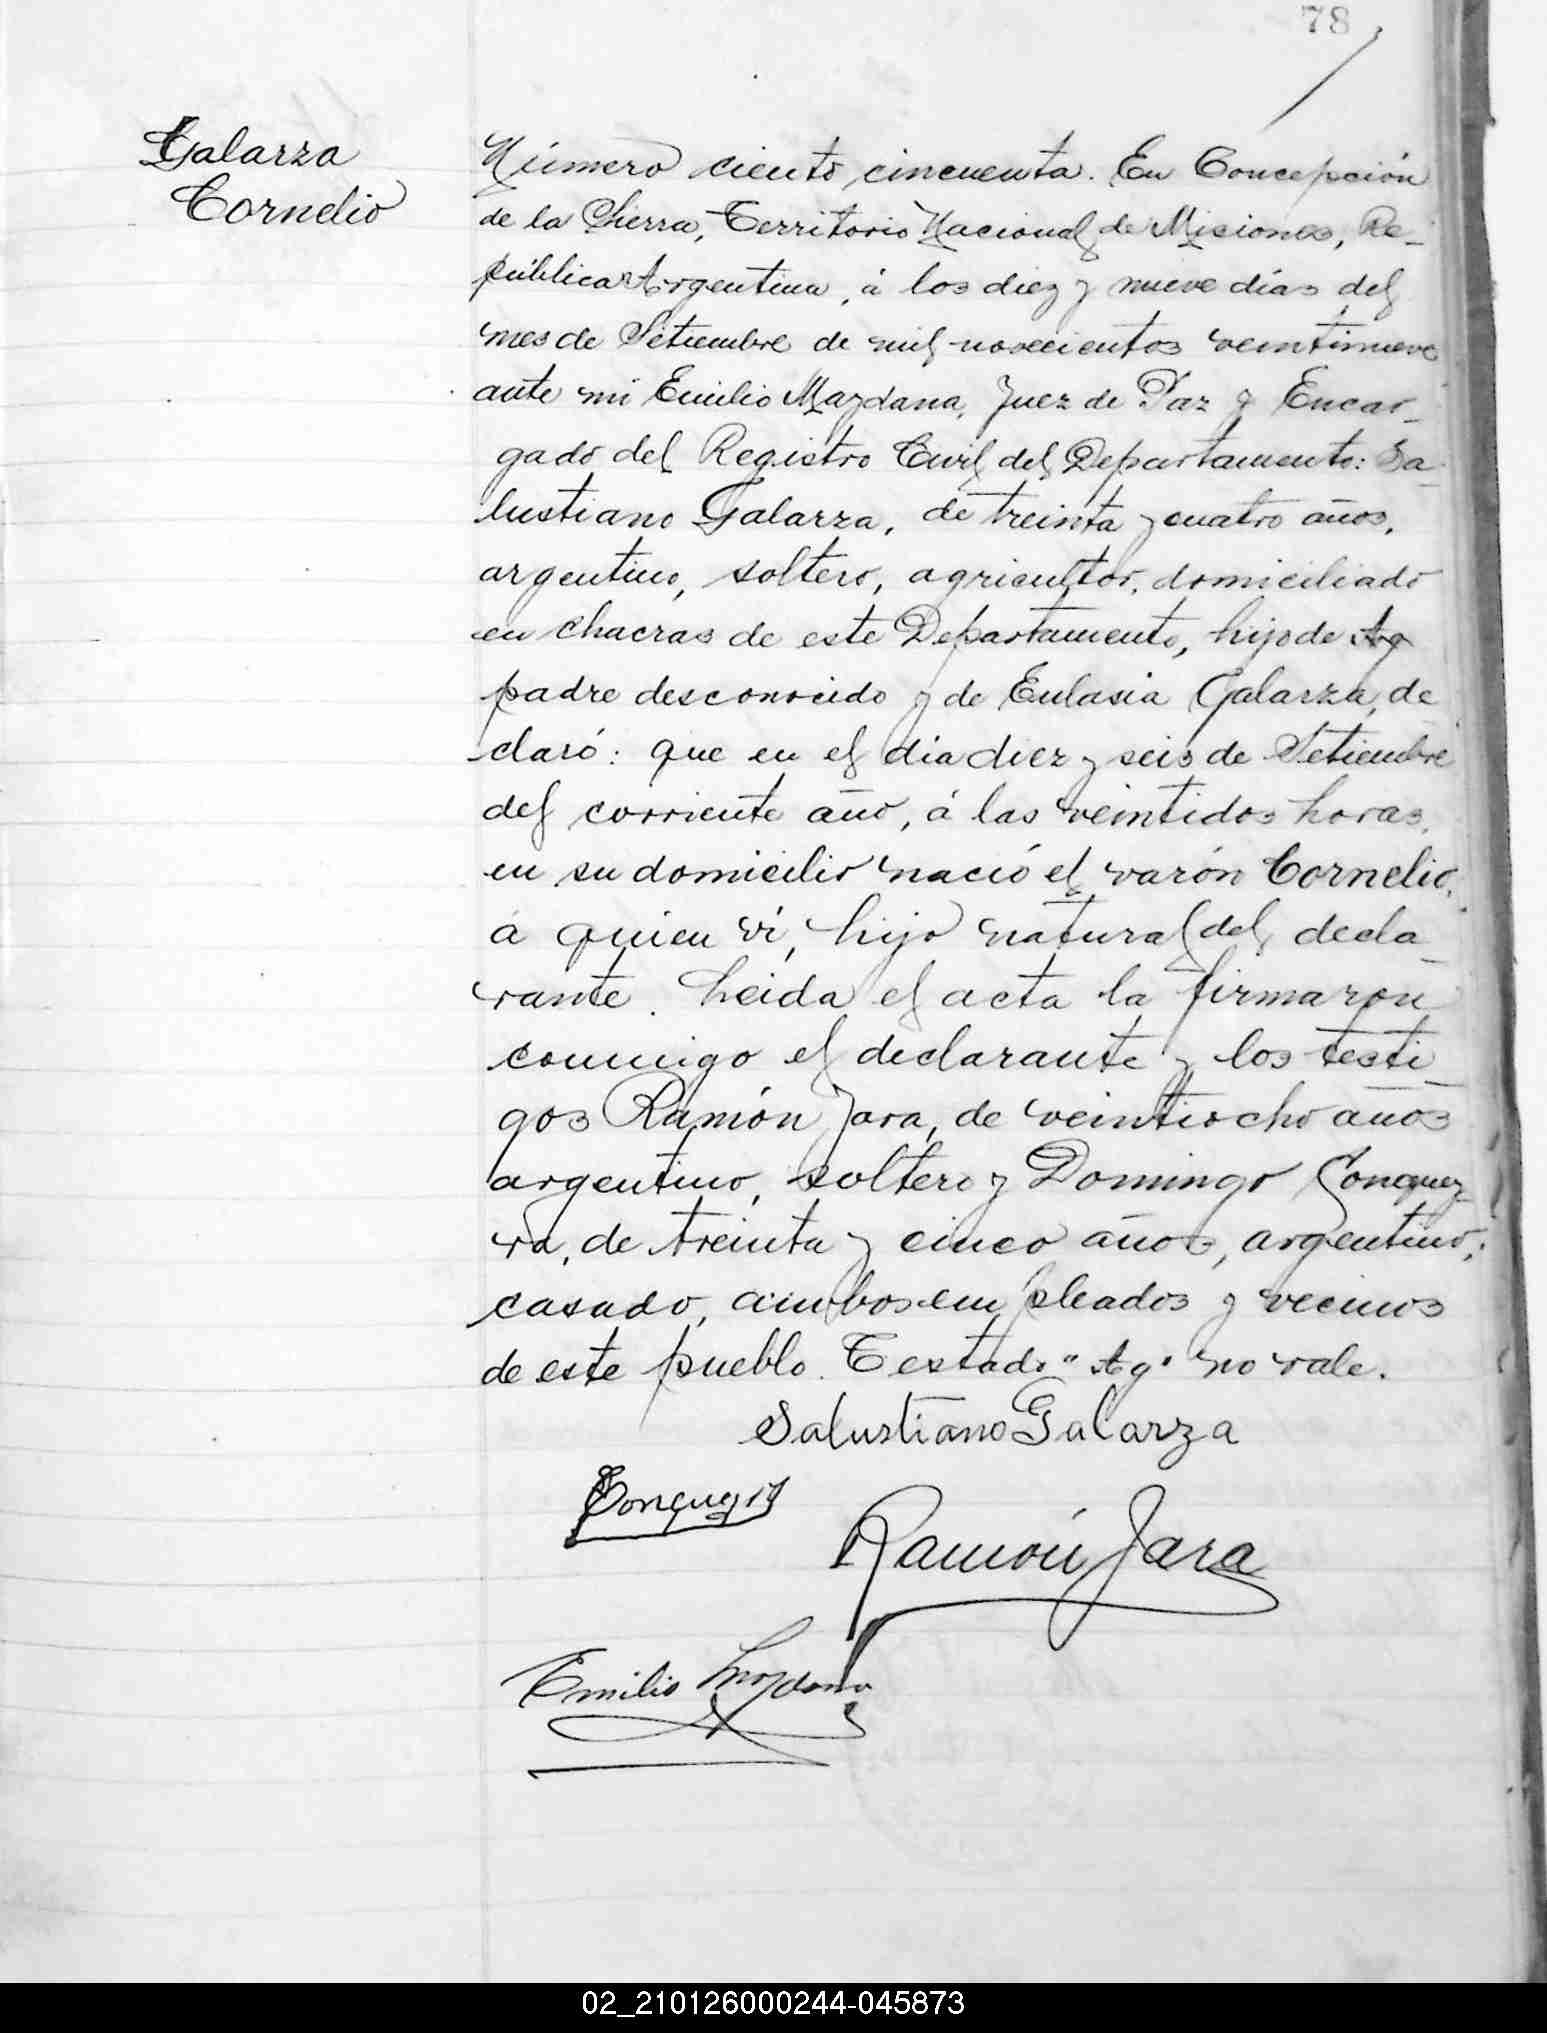 78
Galarza
Cornelio
Número ciento cincuenta. En Concepción
de la Sierra, Territorio Nacional de Misiones, Re-
pública Argentina, á los diez y nueve días del
mes de Setiembre de mil novecientos veintinueve
ante mi Emilio Mazdana, Juez de Paz y Encar-
gado del Registro Civil del Departamento: Sa-
lustiano Galarza, de treinta y cuatro años,
argentino, soltero, agricultor, domiciliado
en chacras de este Departamento, hijo de Ag
padre desconocido y de Eulasia Galarza, de
claró: que en el día diez y seis de Setiembre
del corriente año, á las veintidos horas,
en su domicilio nació el varón Cornelio,
á quien ví, hijo natural del decla-
rante. Leida el acta la firmaron
conmigo el declarante y los testi-
gos Ramón Jara, de veintiocho años
argentino, soltero y Domingo
de treinta y cinco años, argentino,
casado, ambos empleados y vecinos
de este pueblo. Testado "Ag" no vale.
Salustiano Galarza
Ramón Jara
Emilio Mazdana
02_210126000244-045873